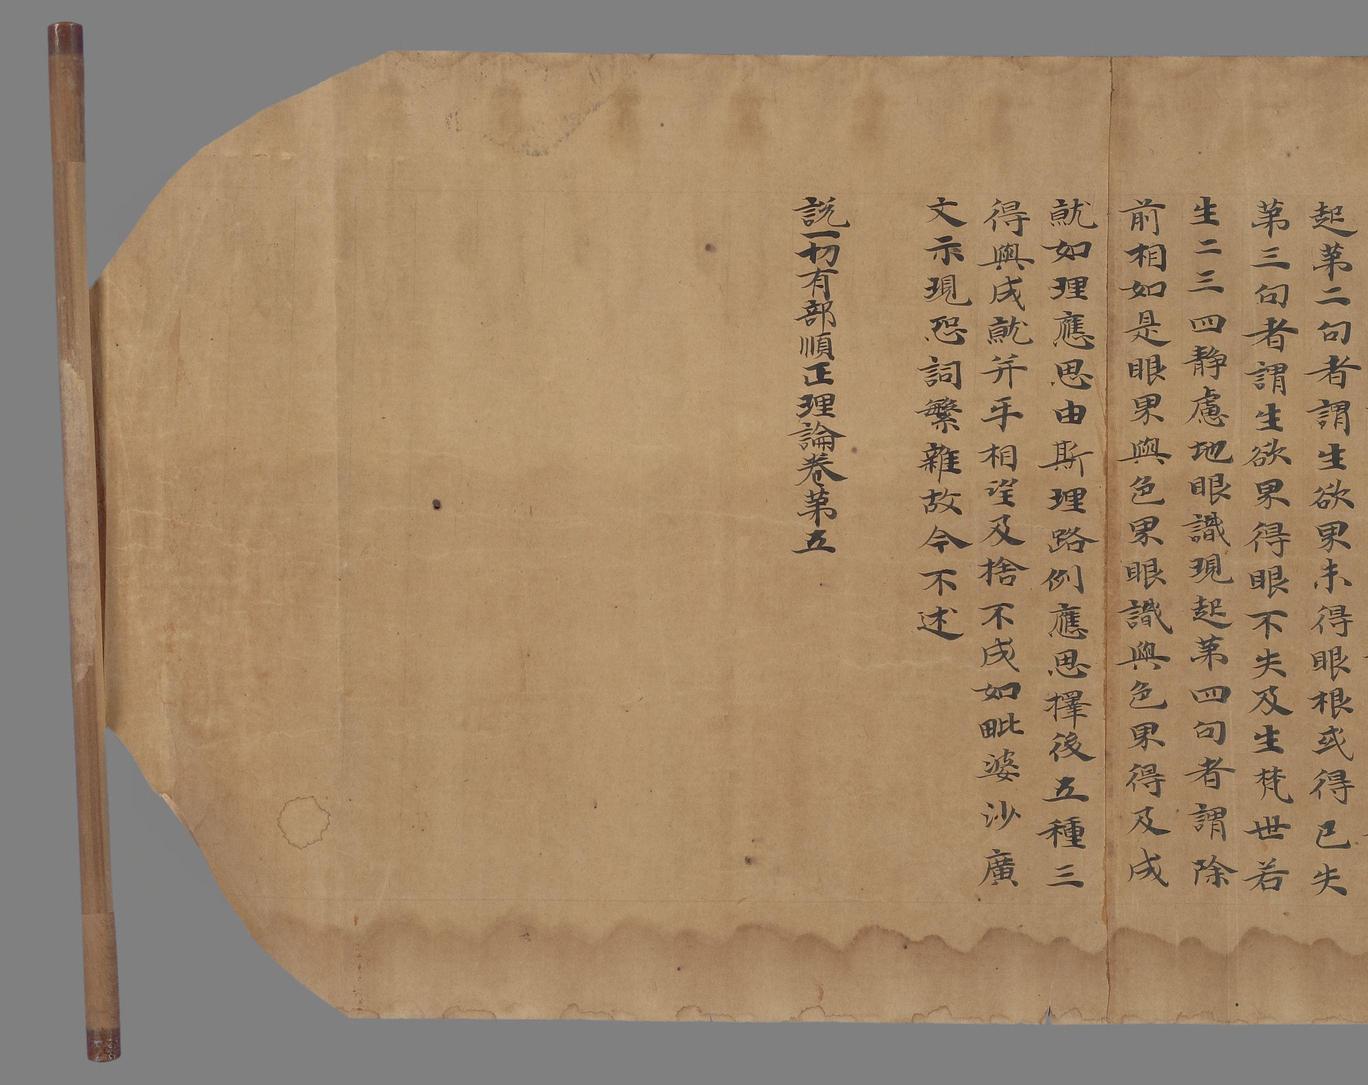 起第二句者謂生欲界未得眼根或得已失
第三句者謂生欲界得眼不失及生梵世若
生二三四静慮地眼識現起第四句者謂除
前相如是眼界與色界眼識與色界得及成
就如理應思由斯理路例應思擇後五種三
得與成就并互相望及捨不成如毗婆沙廣
文示現恐詞繁雜故今不述
說一切有部順正理論卷第五